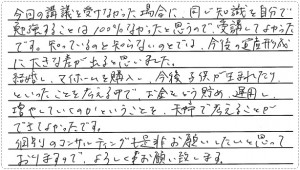 今回の講議を受けなかった場合に、同じ知識を自分で
勉強することは100%なかったと思うので、受講してよかった
です。知っているのと知らないのとでは、今後の資産形成
に大きな差が出ると思いました。
結婚し、マイホームを購入し、今後子供が生まれたり
といったことを考える中で、お金をどう貯め、運用し
増やしていくのかということを、夫婦で考えることが
できてよかったです。
個別のコンサルティングも是非お願いしたいと思って
おりますので、よろしくお願い致します。